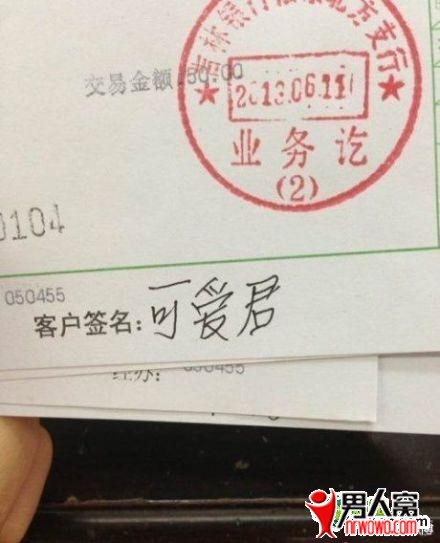 交易金额:50.00
2013.06.11
业务讫
(2)
0104
050455
客户签名:可爱君
经办:
050455
男人窝
nrwowo.com